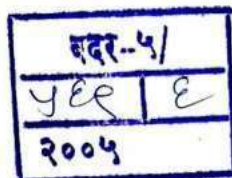 बदर--५/
५६९ | ६
२००५